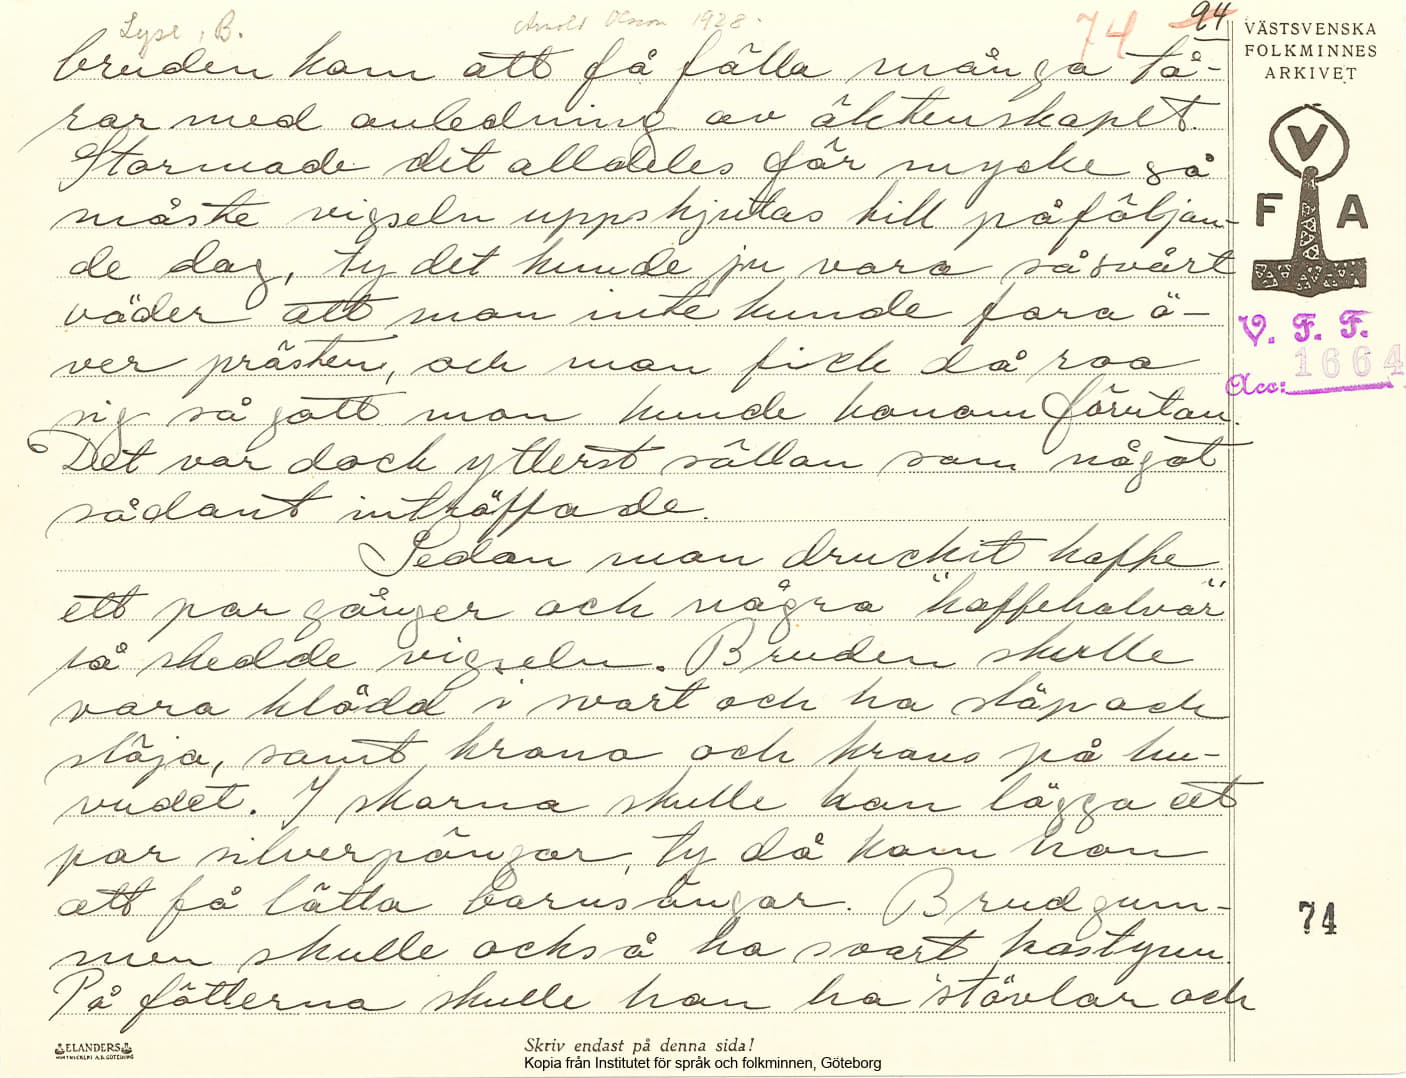 Lyse, B.
Arnold Olsson 1928.
74
94
VÄSTSVENSKA
FOLKMINNES
ARKIVET
V
F A
V. F. F.
1664
Acc:
bruden kom att få fälla många tå-
rar med anledning av äktenskapet.
Stormade det alldeles för mycke så
måste vigseln uppskjutas till påföljan-
de dag, ty det kunde ju vara så svårt
väder att man inte kunde fara ö-
ver prästen, och man fick då roa
sig så gott man kunde honom förutan.
Det var dock ytterst sällan som något
sådant inträffade.
Sedan man druckit kaffe
ett par gånger och några "kaffehalvär"
så skedde vigseln. Bruden skulle
vara klädd i svart och ha släp och
slöja, samt krona och krans på hu-
vudet. I skorna skulle hon lägga ett
par silverpängar, ty då kom hon
att få lätta barnsängar. Brudgum-
men skulle också ha svart kostym.
På fötterna skulle han ha stövlar och
74
ELANDERS
Skriv endast på denna sida!
Kopia från Institutet för språk och folkminnen, Göteborg